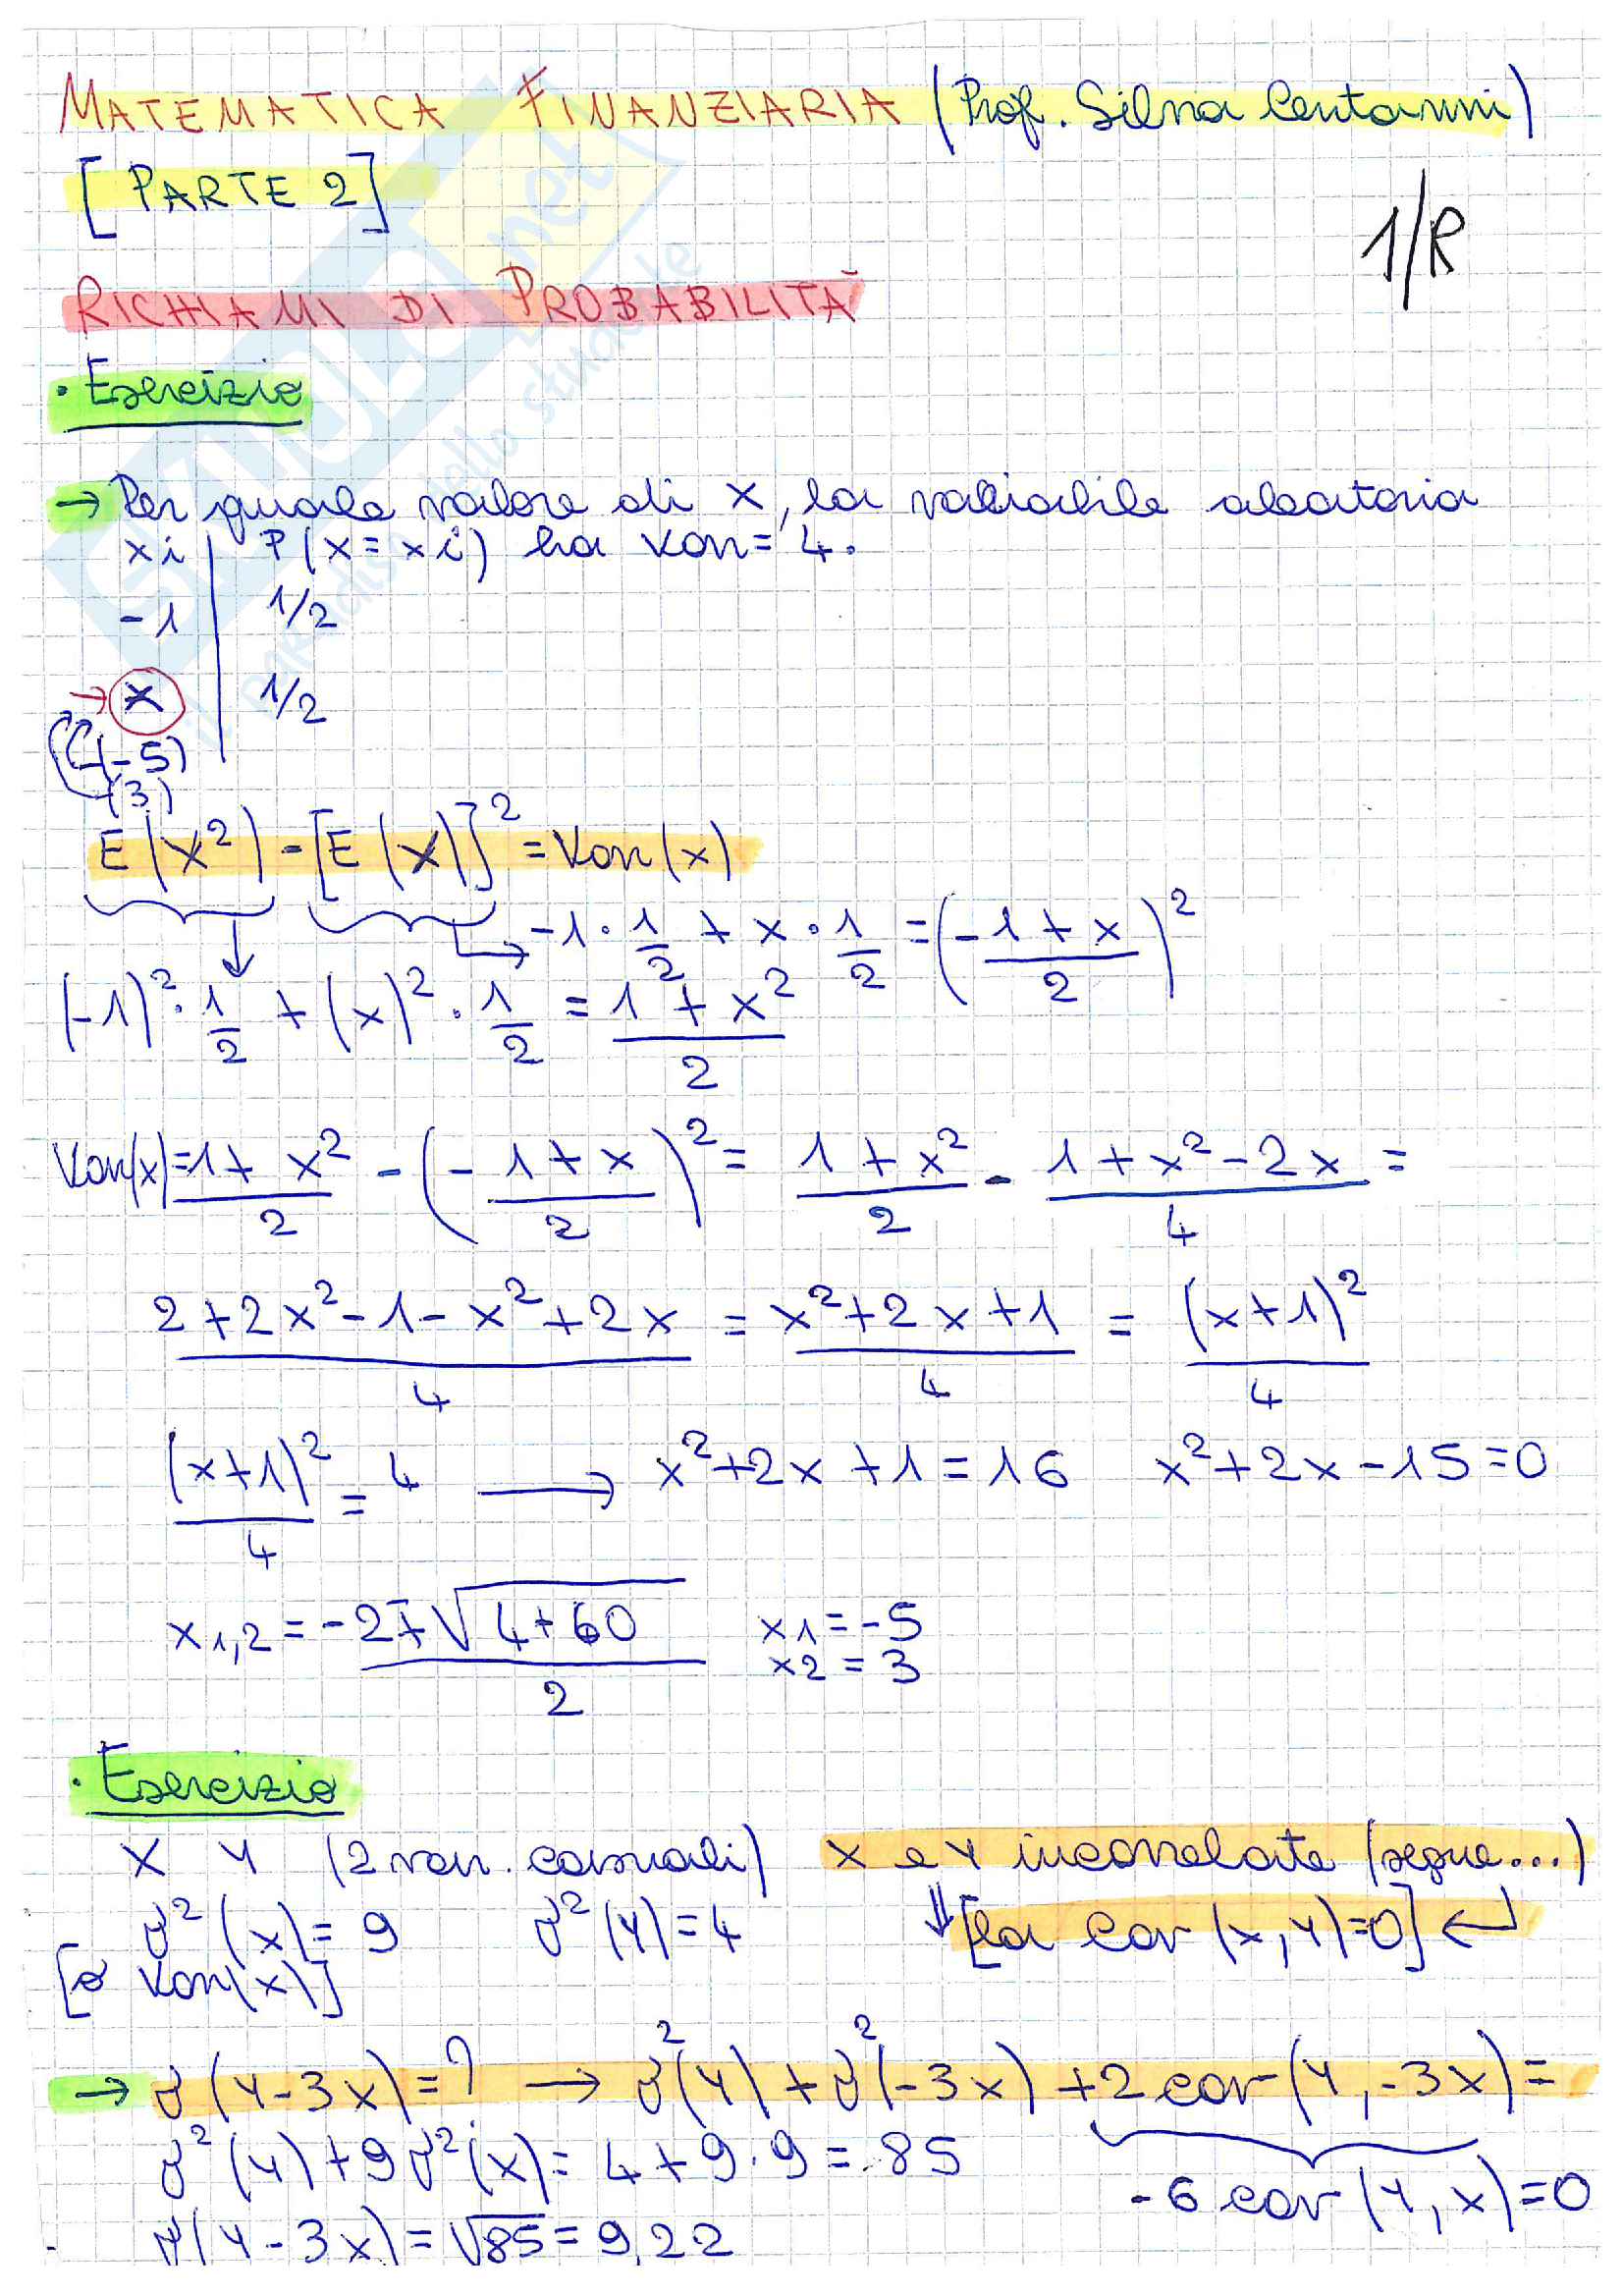 MATEMATICA FINANZIARIA (Prof. Silvia Centanni)
[PARTE 2]
1/R
RICHIAMI DI PROBABILITÀ
• Esercizio
→ Per quale valore di x, la variabile aleatoria
xi | P(x=xi) ha Var=4.
-1 | 1/2
→ x | 1/2
(-5)
(3)
E(X²) - [E(X)]² = Var(x)
-1 · 1/2 + x · 1/2 = (-1+x / 2)²
(-1)² · 1/2 + (x)² · 1/2 = 1+x² / 2
Var(x) = 1+x² / 2 - (-1+x / 2)² = 1+x² / 2 - 1+x²-2x / 4 =
2+2x²-1-x²+2x / 4 = x²+2x+1 / 4 = (x+1)² / 4
(x+1)² / 4 = 4 → x²+2x+1=16 x²+2x-15=0
x1,2 = -2∓√4+60 / 2 x1=-5
x2=3
• Esercizio
X Y (2 var. casuali) X e Y incorrelate (segue...)
σ²(x)=9 σ²(Y)=4 ⇓ [la cov(x,Y)=0] ↵
[o Var(x)]
→ σ(Y-3x)=? → σ²(Y)+σ²(-3x)+2cov(Y,-3x)=
σ²(Y)+9σ²(x)=4+9·9=85
-6cov(Y,x)=0
σ(Y-3x)=√85=9,22